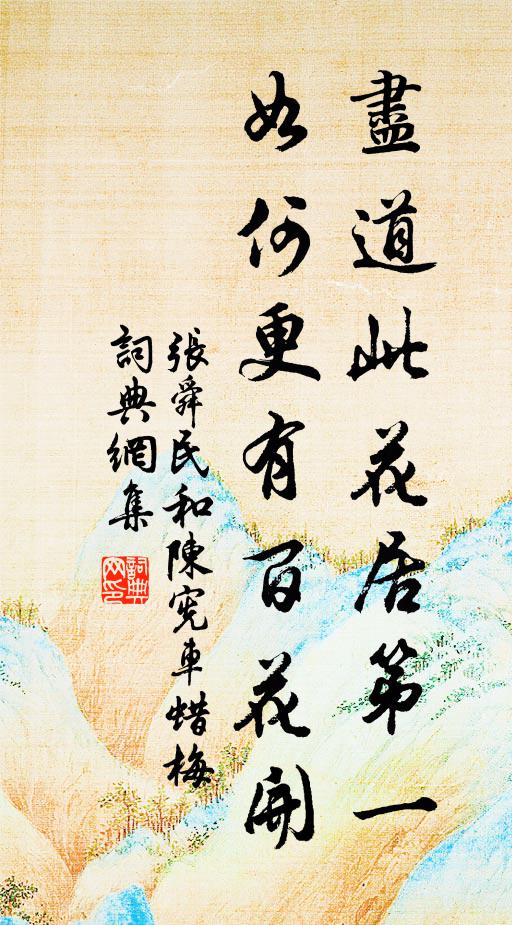 盡道此花居第一
如何更有百花開
張舜民和陳寃車蜡梅
詞典網集
詞典
网印